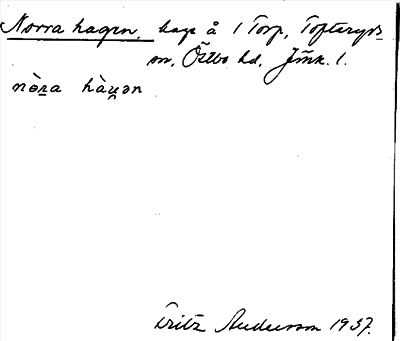 Norra hagen, hage å 1 Torp, Tofteryds
sn, Östbo hd, Jmk. l.
nòra hàɣən
Fritz Anderson 1937.